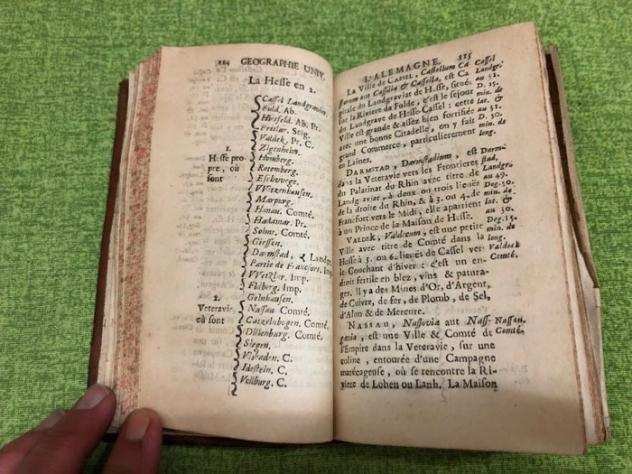 224 GEOGRAPHIE UNIV.
La Hesse en 2.
1.
Hesse pro
pre, où
sont
Cassel Landgraviat,
Fuld. Ab.
Hirsfeld. Ab. Pr.
Fritzlar. Seig.
Valdek, Pr. C.
Zigenheim.
Homberg.
Rotemberg.
Eschevvege.
VVitzenhausen.
Marpurg.
Hanau. Comté.
Hadamar. Pr.
Solms. Comté.
Giessen.
Darmstad,
Partie de Francfort. Imp.
VVetzlar. Imp.
Fridberg. Imp.
Gelnhausen.
2.
Veteravie,
où sont
Nassau Comté.
Catzelnbogen. Comté.
Dillenburg. Comté.
Siegen.
Visbaden. C.
Idestein. C.
Veilburg. C.
L'ALEMAGNE. 225
La Ville de CASSEL, Castellum Cattorum aut Cassilia & Cassella, est Ca
pitale du Landgraviat de Hesse, située
sur la Riviere de Fulde, c'est le séjour
du Landgrave de Hesse-Cassel : cette
Ville est grande & assez bien fortifiée
avec une bonne Citadelle, on y fait
grand Commerce, particulierement
en Laines.
DARMSTAD, Darmstadium, est
dans la Veteravie vers les Frontieres
du Palatinat du Rhin avec titre de
Landgraviat, à deux ou trois lieuës
de la droite du Rhin, & à 3. ou 4. de
Francfort vers le Midi, elle apartient
à un Prince de la Maison de Hesse.
VALDEK, Valdecum, est une petite
Ville avec titre de Comté dans la
Hesse à 5. ou 6. lieuës de Cassel vers
le Couchant d'hiver : c'est un en-
droit fertile en blez, vins & patura-
ges. Il y a des Mines d'Or, d'Argent,
de Cuivre, de fer, de Plomb, de Sel,
d'Alun & de Mercure.
NASSAU, Nassovia aut Nass-
govia, est une Ville & Comté de
l'Empire dans la Veteravie, sur une
coline, entourée d'une Campagne
marécageuse, où se rencontre la Ri-
viere de Lohen ou Lanh. La Maison
Cassel
Landgr.
au 51.
D. 15.
min. de
lat. &
au 51.
D. 30.
min. de
long.
Darm-
stad,
Landgr.
au 49.
Deg. 50.
min. de
lat. &
au 30.
Deg. 15.
min. de
long.
Valdek
Comté.
Nassau,
Comté.